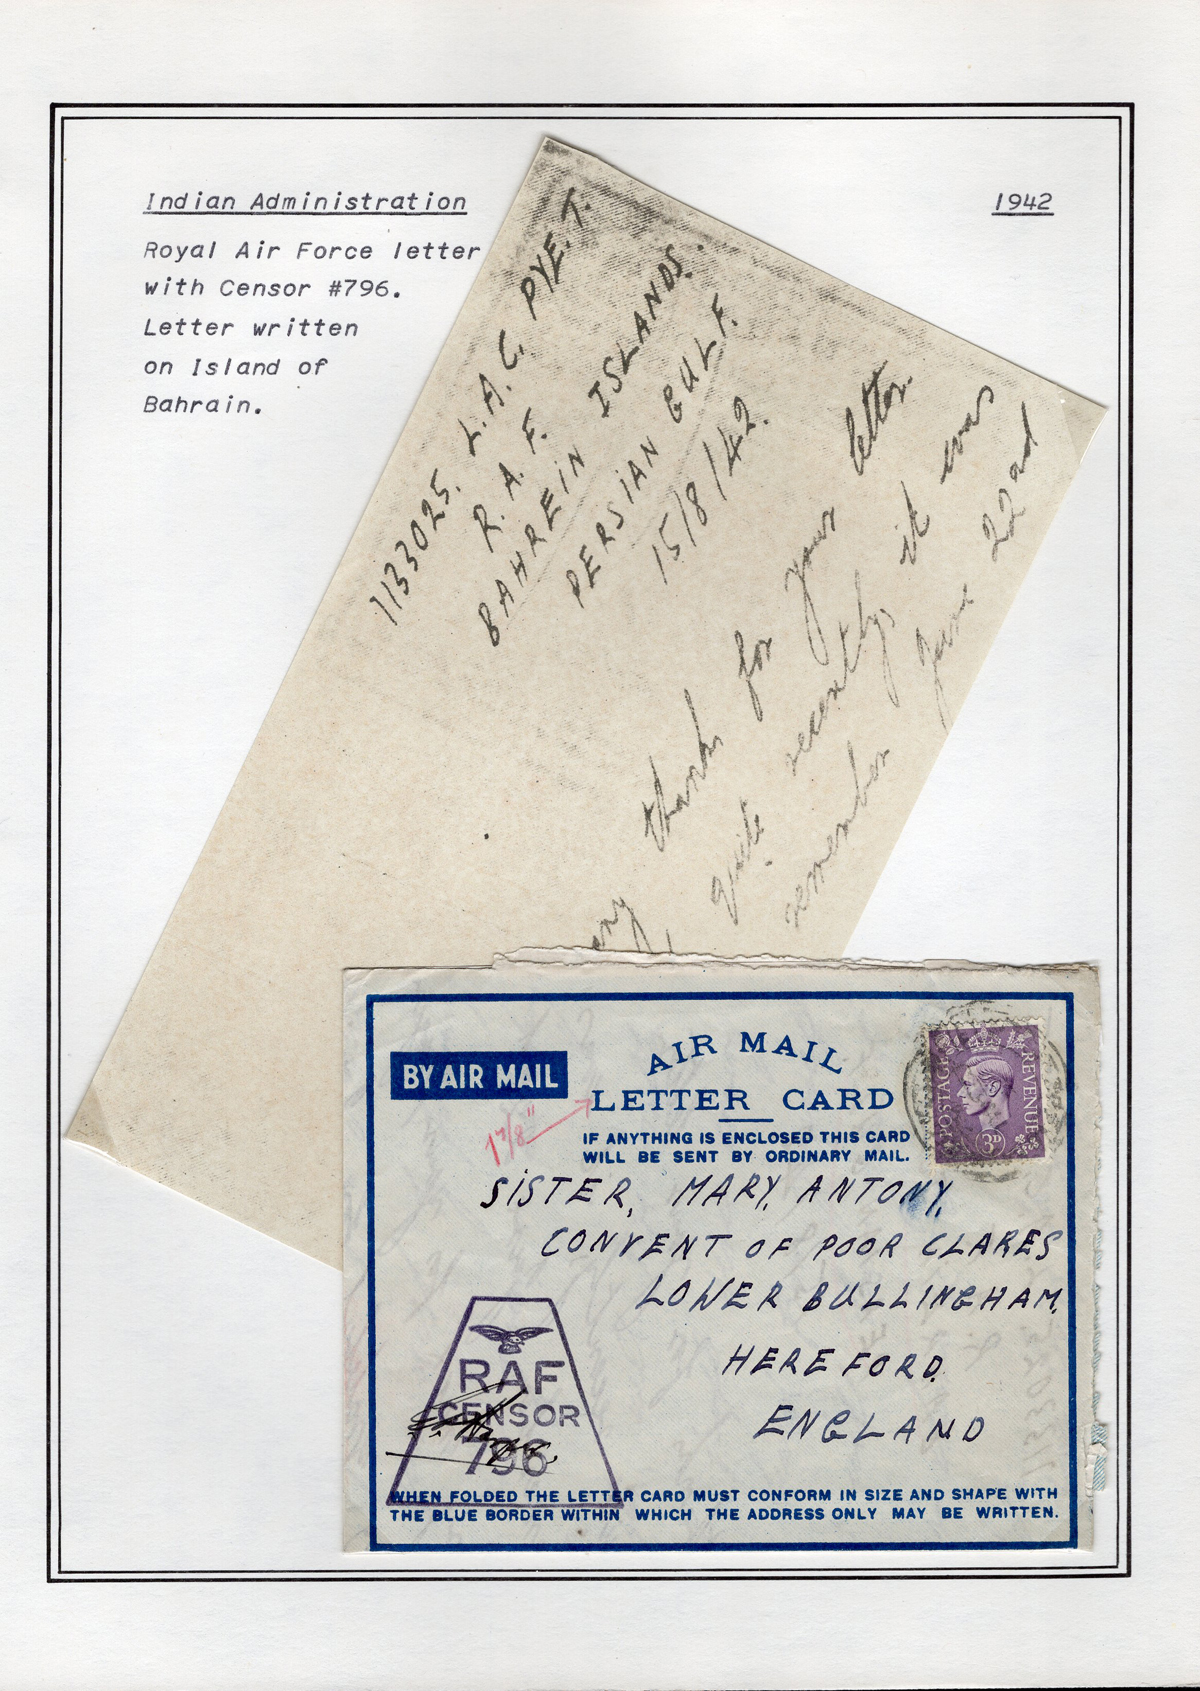 Indian Administration
1942
Royal Air Force letter
with Censor #796.
Letter written
on Island of
Bahrain.
1133025. L.A.C. PYE. T.
R. A. F.
BAHREIN ISLANDS.
PERSIAN GULF.
15/8/42.
thanks for your letter
quite recently, it was
remember June 22nd
BY AIR MAIL
AIR MAIL
LETTER CARD
IF ANYTHING IS ENCLOSED THIS CARD
WILL BE SENT BY ORDINARY MAIL.
POSTAGE REVENUE
3D
1 7/8"
SISTER, MARY, ANTONY,
CONVENT OF POOR CLARES
LOWER BULLINGHAM,
HEREFORD.
ENGLAND
RAF
CENSOR
796
WHEN FOLDED THE LETTER CARD MUST CONFORM IN SIZE AND SHAPE WITH
THE BLUE BORDER WITHIN WHICH THE ADDRESS ONLY MAY BE WRITTEN.